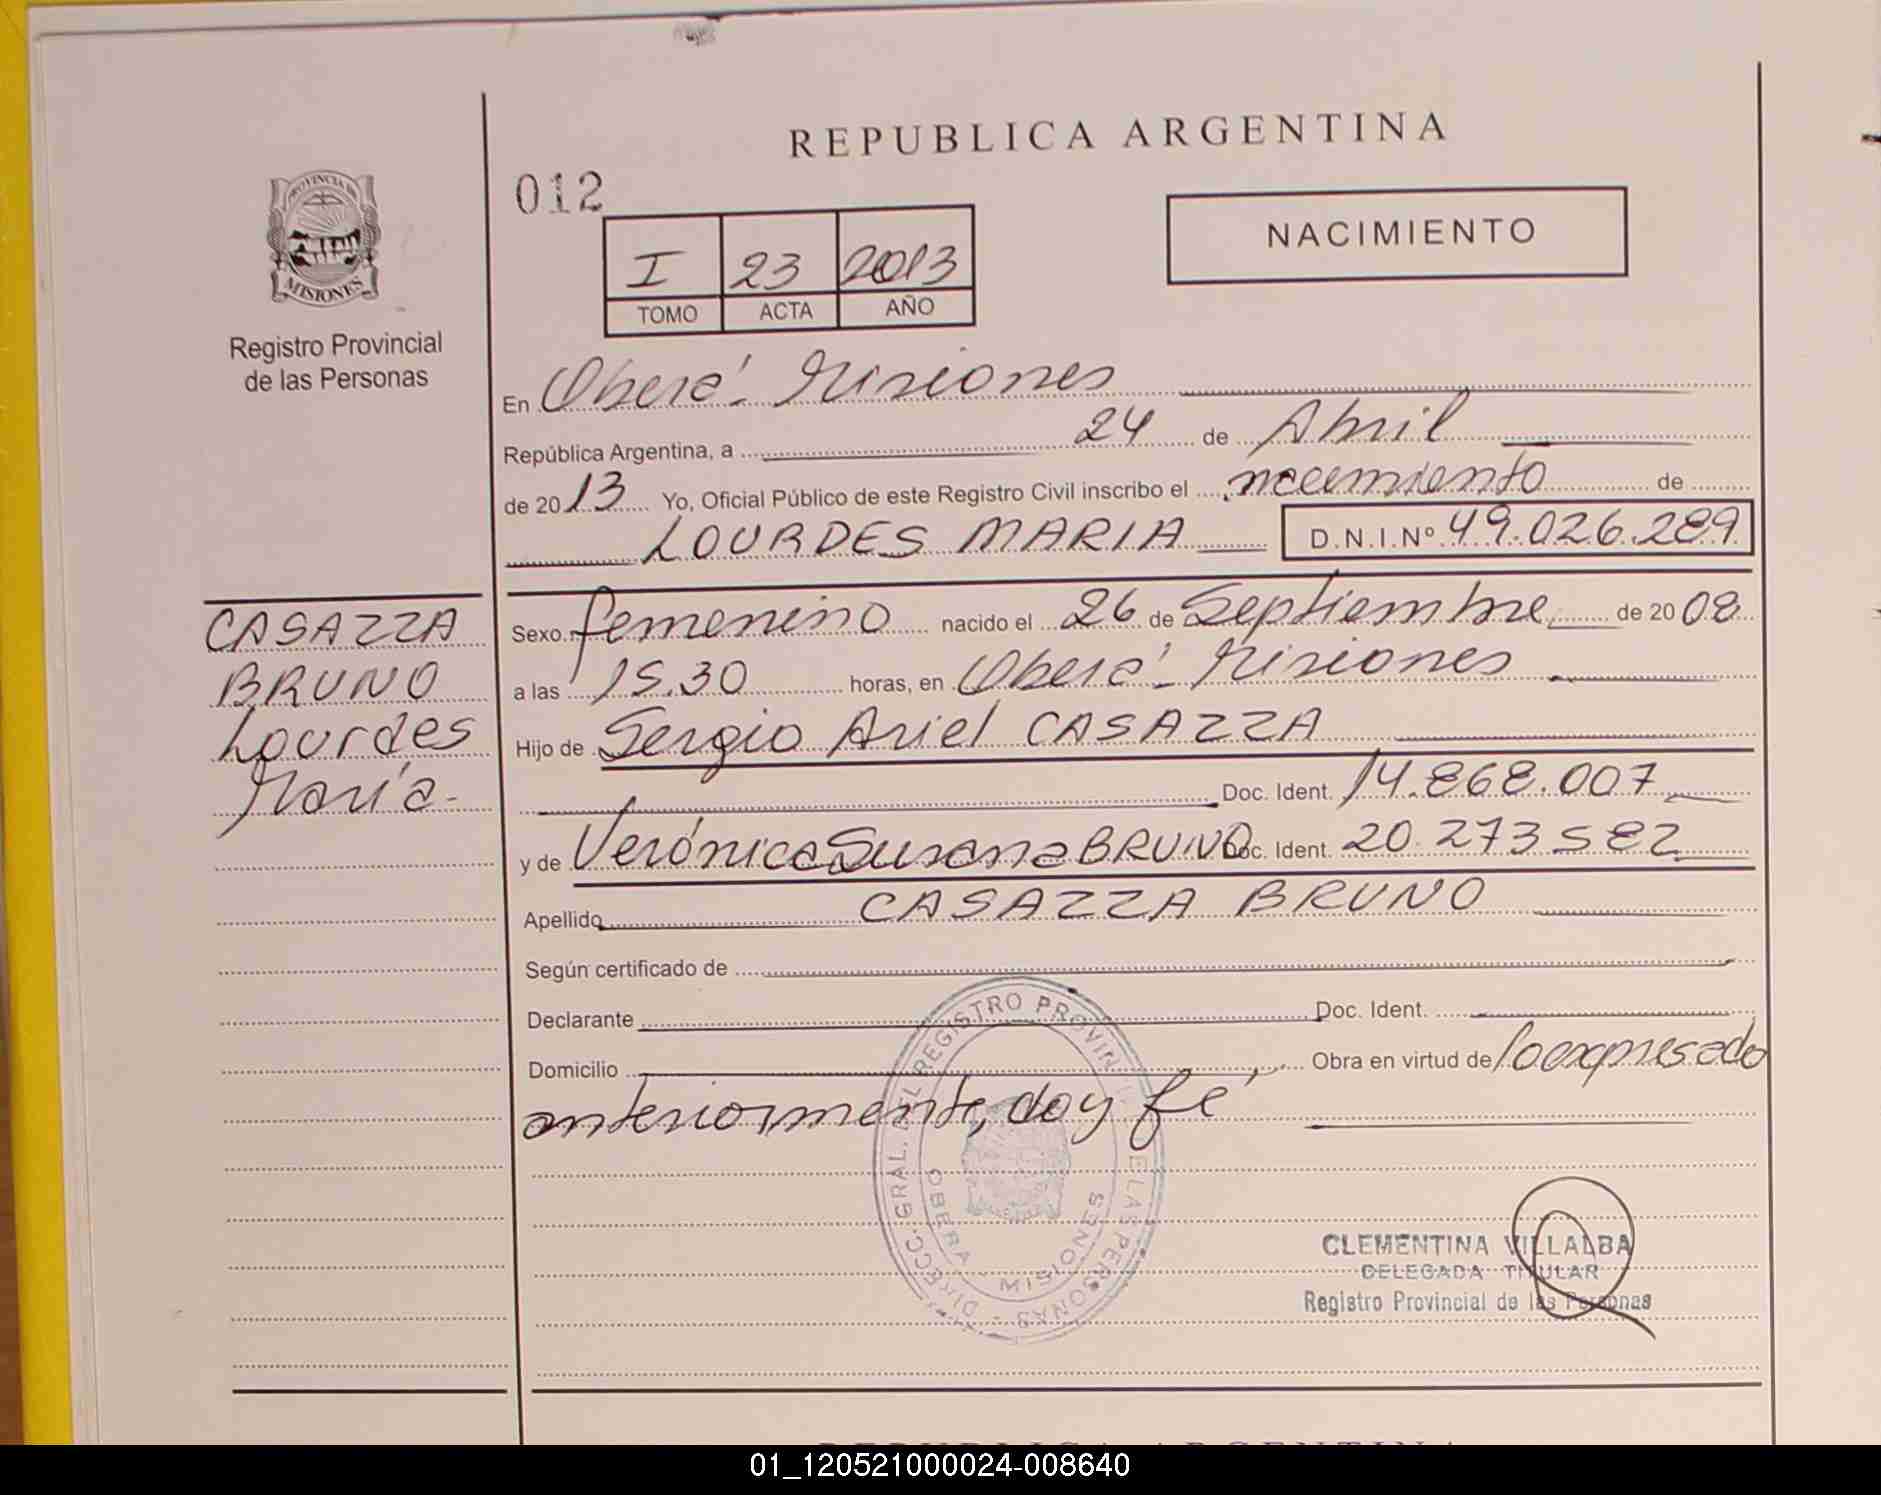 REPUBLICA ARGENTINA
012
NACIMIENTO
I 23 2013
TOMO ACTA AÑO
PROVINCIA DE
MISIONES
Registro Provincial
de las Personas
En Oberá - Misiones
República Argentina, a 24 de Abril
de 2013 Yo, Oficial Público de este Registro Civil inscribo el nacimiento de
LOURDES MARIA D.N.I.Nº 49.026.289
CASAZZA
BRUNO
Lourdes
María-
Sexo femenino nacido el 26 de Septiembre de 2008
a las 15.30 horas, en Oberá - Misiones
Hijo de Sergio Ariel CASAZZA
Doc. Ident. 14.868.007
y de Verónica Susana BRUNO Doc. Ident. 20.273582
Apellido CASAZZA BRUNO
Según certificado de
Declarante Doc. Ident.
Domicilio Obra en virtud de lo expresado
anteriormente, doy fé
DIRECC. GRAL. DEL REGISTRO PROVINCIAL DE LAS PERSONAS
OBERA - MISIONES
CLEMENTINA VILLALBA
DELEGADA TITULAR
Registro Provincial de las Personas
REPUBLICA ARGENTINA
01_120521000024-008640